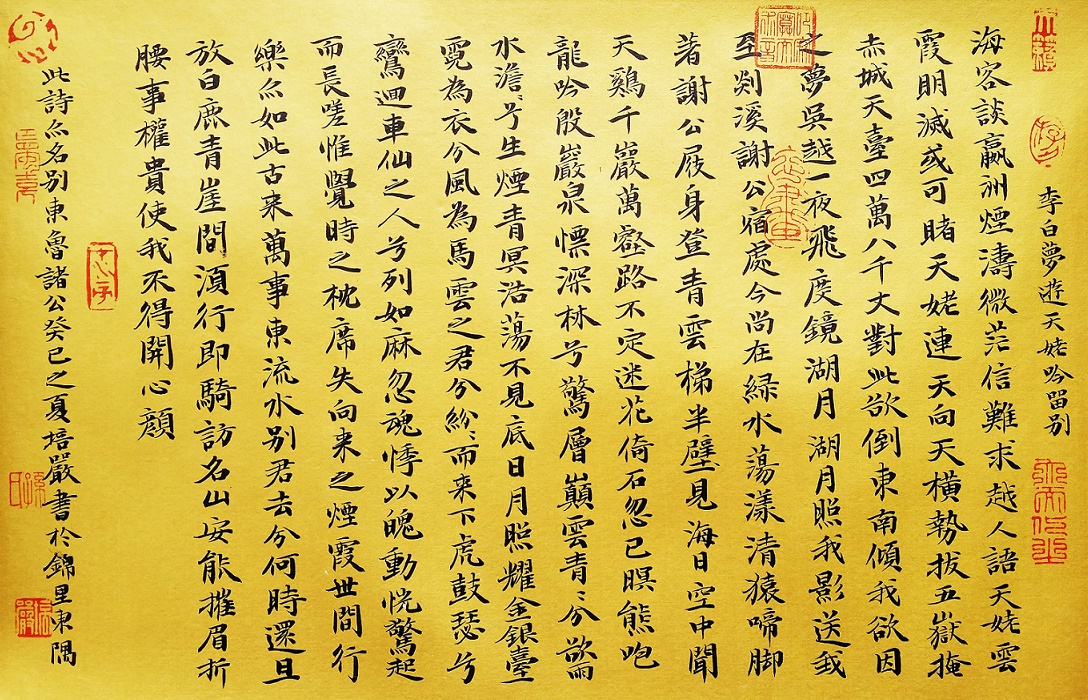 李白夢遊天姥吟留别
海客談瀛洲煙濤微茫信難求越人語天姥雲
霞明滅或可睹天姥連天向天橫勢拔五嶽掩
赤城天臺四萬八千丈對此欲倒東南傾我欲因
之夢吳越一夜飛度鏡湖月湖月照我影送我
至剡溪謝公宿處今尚在綠水蕩漾清猿啼脚
著謝公屐身登青雲梯半壁見海日空中聞
天鷄千巖萬壑路不定迷花倚石忽已暝熊咆
龍吟殷巖泉慄深林兮驚層巔雲青〻兮欲雨
水澹〻兮生煙青冥浩蕩不見底日月照耀金銀臺
霓為衣兮風為馬雲之君兮紛〻而来下虎鼓瑟兮
鸞迴車仙之人兮列如麻忽魂悸以魄動恍驚起
而長嗟惟覺時之枕席失向来之煙霞世間行
樂亦如此古来萬事東流水别君去兮何時還且
放白鹿青崖間須行即騎訪名山安能摧眉折
腰事權貴使我不得開心顔
此詩亦名别東魯諸公癸巳之夏培嚴書於錦里東隅